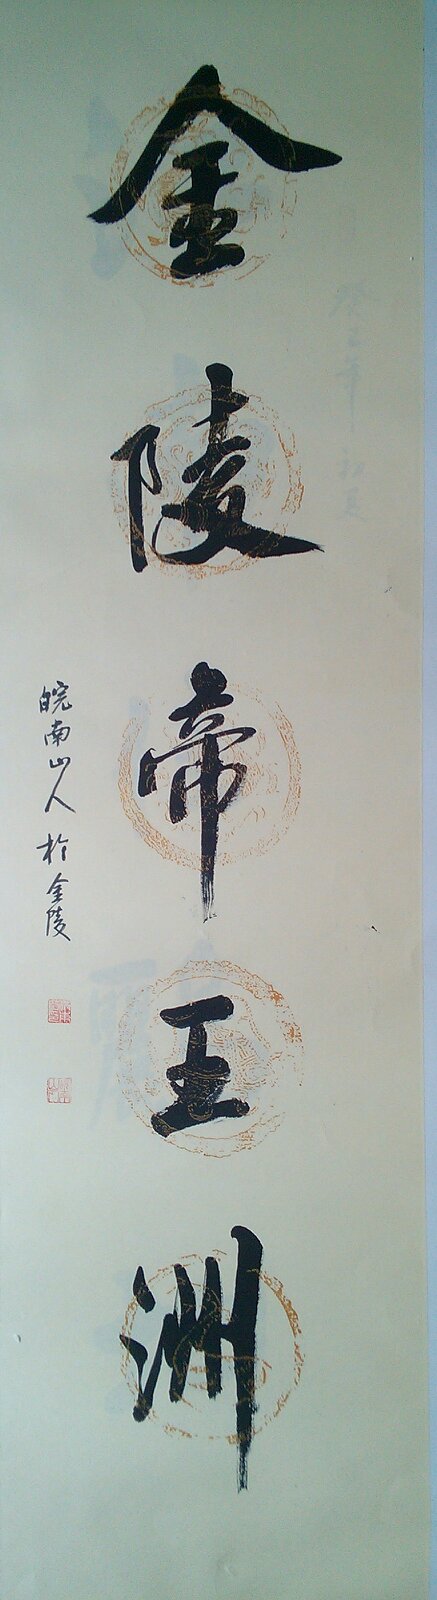 金陵帝王洲
皖南山人於金陵